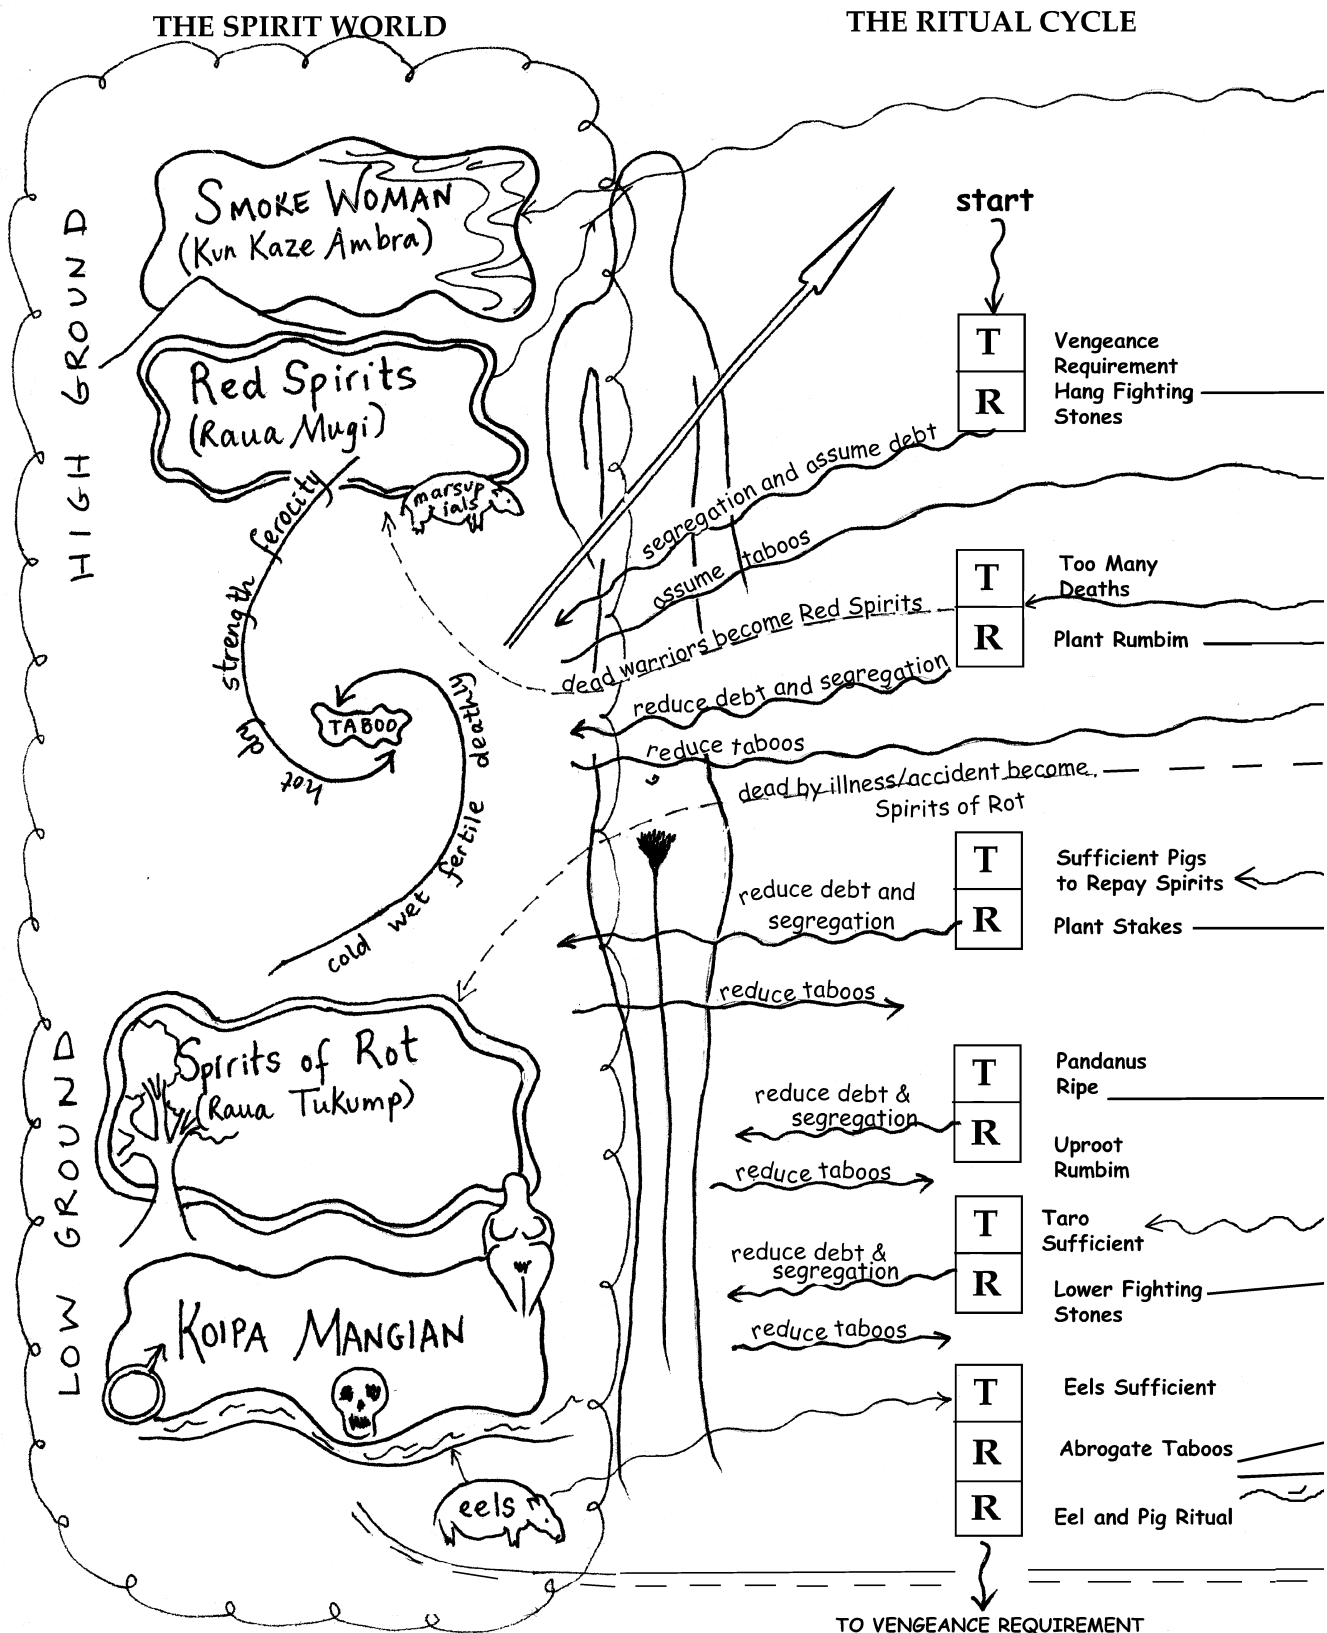 THE SPIRIT WORLD
THE RITUAL CYCLE
HIGH GROUND
SMOKE WOMAN
(Kun Kaze Ambra)
Red Spirits
(Raua Mugi)
marsup
ials
ferocity
strength
dry
hot
TABOO
deathly
fertile
wet
cold
LOW GROUND
Spirits of Rot
(Raua Tukump)
KOIPA MANGIAN
eels
start
T
R
Vengeance
Requirement
Hang Fighting
Stones
segregation and assume debt
assume taboos
T
R
Too Many
Deaths
Plant Rumbim
dead warriors become Red Spirits
reduce debt and segregation
reduce taboos
dead by illness/accident become
Spirits of Rot
T
R
Sufficient Pigs
to Repay Spirits
Plant Stakes
reduce debt and
segregation
reduce taboos
T
R
Pandanus
Ripe
Uproot
Rumbim
reduce debt &
segregation
reduce taboos
T
R
Taro
Sufficient
Lower Fighting
Stones
reduce debt &
segregation
reduce taboos
T
R
R
Eels Sufficient
Abrogate Taboos
Eel and Pig Ritual
TO VENGEANCE REQUIREMENT